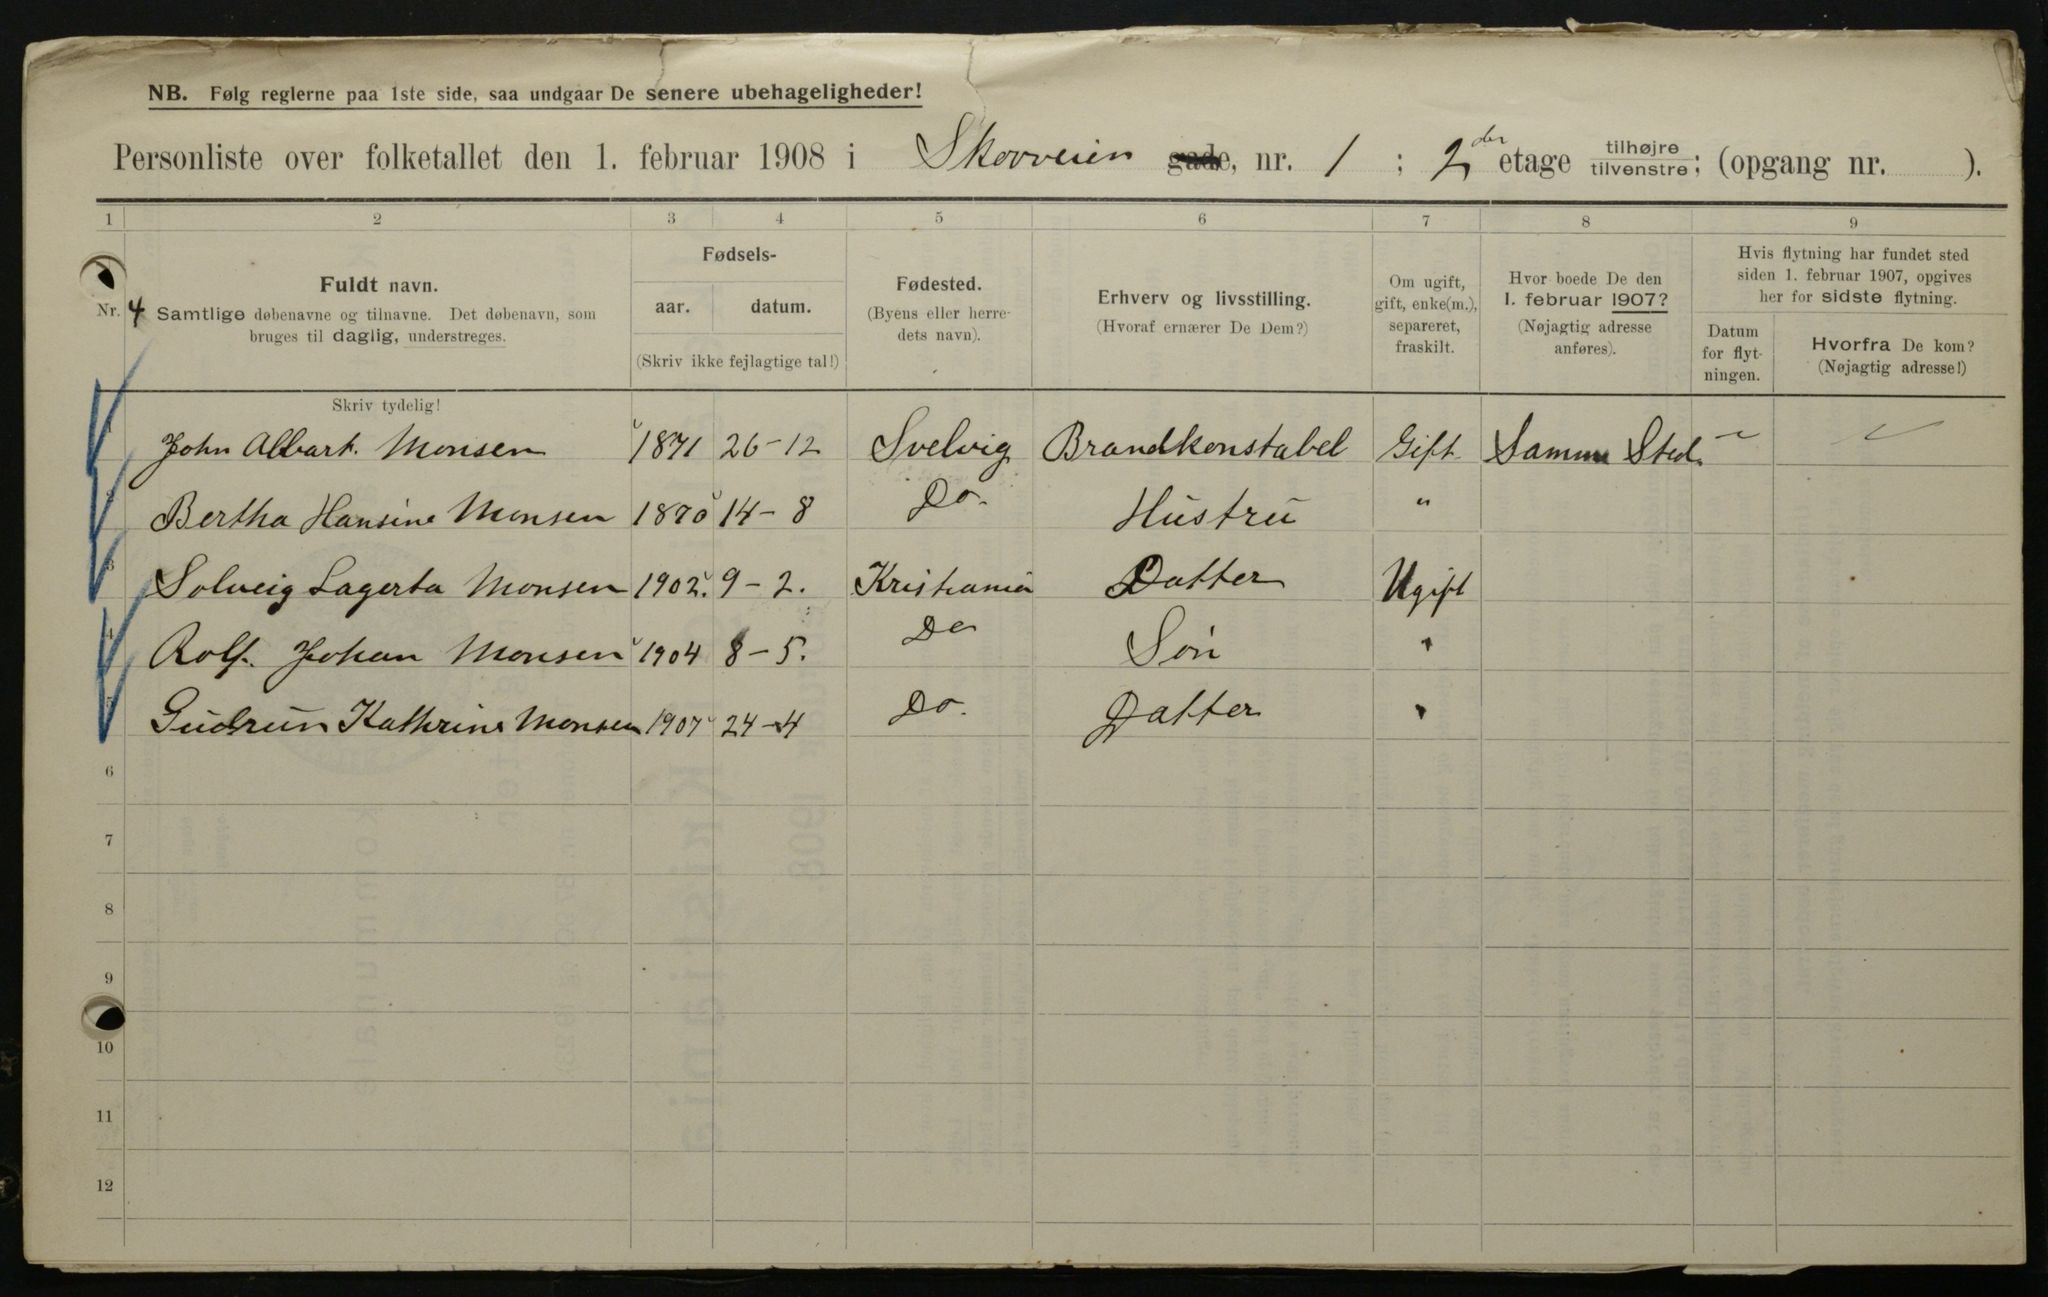 NB. Følg reglerne paa 1ste side, saa undgaar De senere ubehageligheder!
Personliste over folketallet den 1. februar 1908 i Skovveien gade, nr. 1 ; 2den etage tilhøjre tilvenstre; (opgang nr. ).
1 2 3 4 5 6 7 8 9
Nr. 4
Fuldt navn.
Samtlige døbenavne og tilnavne. Det døbenavn, som
bruges til daglig, understreges.
Skriv tydelig!
Fødsels-
aar. datum.
(Skriv ikke fejlagtige tal!)
Fødested.
(Byens eller herre-
dets navn).
Erhverv og livsstilling.
(Hvoraf ernærer De Dem?)
Om ugift,
gift, enke(m.),
separeret,
fraskilt.
Hvor boede De den
1. februar 1907?
(Nøjagtig adresse
anføres).
Hvis flytning har fundet sted
siden 1. februar 1907, opgives
her for sidste flytning.
Datum
for flyt-
ningen.
Hvorfra De kom?
(Nøjagtig adresse!)
1 John Albart. Monsen 1871 26-12 Svelvig Brandkonstabel Gift Samme Sted.
2 Bertha Hansine Monsen 1870 14-8 Do. Hustru "
3 Solveig Lagerta Monsen 1902. 9-2. Kristiania Datter Ugift
4 Rolf. Johan Monsen 1904 8-5. Do Søn "
5 Gudrun Kathrine Monsen 1907 24-4 Do. Datter "
6
7
8
9
10
11
12